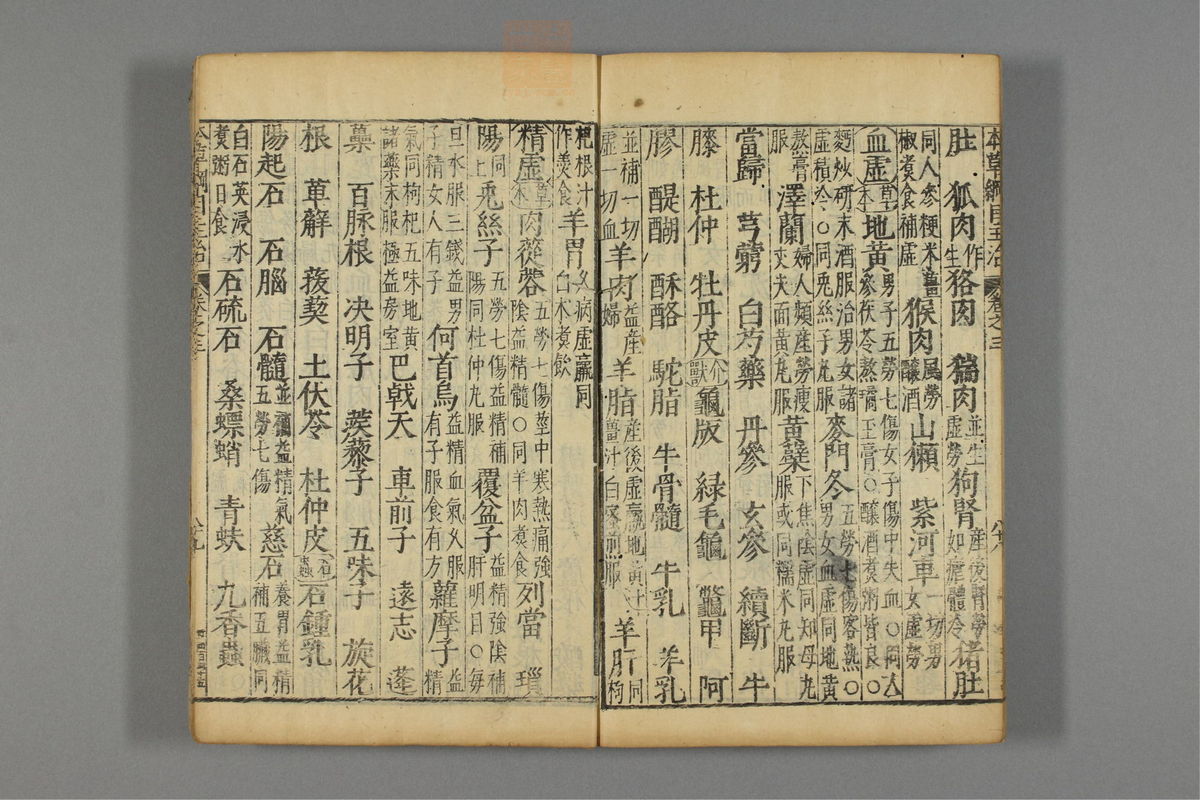 本草綱目主治 卷之三 八十八
肚 狐肉作生 狢肉 貒肉並主虛勞 狗腎產後腎勞如瘧體冷 猪肚
同人參粳米薑椒煮食補虛 猴肉風勞釀酒 山獺 紫河車一切男女虛勞
血虛 草木 地黃男子五勞七傷女子傷中失血○同人參茯苓熬瓊玉膏○釀酒煮粥皆良○
麪炒研末酒服治男女諸虛積冷○同兎絲子丸服 麥門冬五勞七傷客熱○男女血虛同地黃
熬膏服 澤蘭婦人頻產勞瘦丈夫面黃丸服 黃蘗下焦陰虛同知母丸服或同糯米丸服
當歸 芎藭 白芍藥 丹參 玄參 續斷 牛
膝 杜仲 牡丹皮 介獸 龜版 緑毛龜 鼈甲 阿
膠 醍醐 酥酪 駝脂 牛骨髓 牛乳 羊乳
並補一切虛一切血 羊肉益產婦 羊脂產後虛羸地黃汁薑汁白蜜煎服 羊肝同枸
杞根汁作羹食 羊胃久病虛羸同白朮煮飲
精虛 草木 肉蓯蓉五勞七傷莖中寒熱痛強陰益精髓○同羊肉煮食 列當 瑣
陽同上 兎絲子五勞七傷益精補陽同杜仲丸服 覆盆子益精強陰補肝明目○每
旦水服三錢益男子精女人有子 何首烏益精血氣久服有子服食有方 蘿摩子益精
氣同枸杞五味地黃諸藥末服極益房室 巴戟天 車前子 遠志 蓬
蘽 百脉根 决明子 蒺藜子 五味子 旋花
根 萆薢 菝葜 土伏苓 杜仲皮 石蟲 石鍾乳
陽起石 石腦 石髓並補益精氣五勞七傷 慈石養胃益精補五臟同
白石英浸水煮粥日食 石硫石 桑螵蛸 青蚨 九香蟲○
本草綱目主治 卷之三 八十九